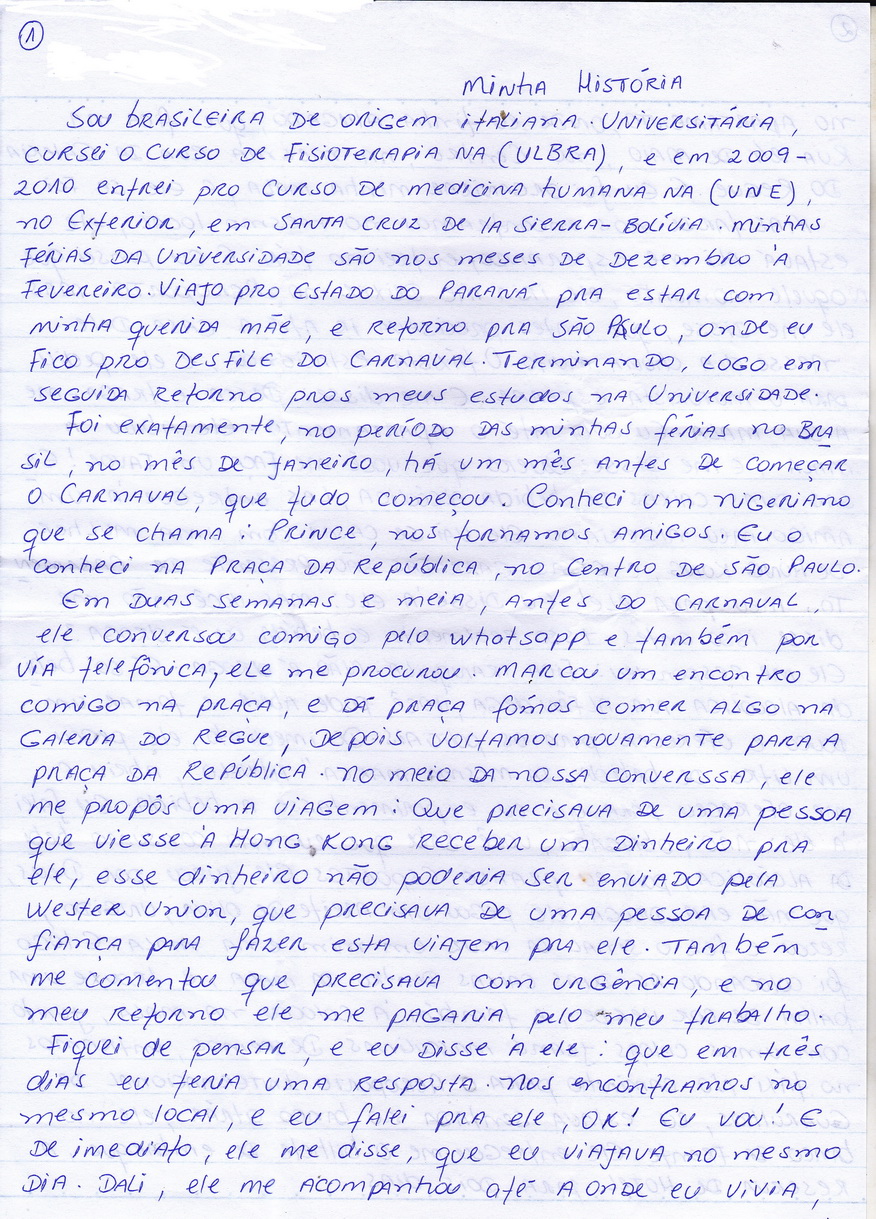 1
Minha História
Sou brasileira de origem italiana. Universitária,
cursei o curso de fisioterapia na (ULBRA), e em 2009-
2010 entrei pro curso de medicina humana na (UNE),
no Exterior, em Santa Cruz de la Sierra-Bolívia. Minhas
férias da Universidade são nos meses de Dezembro à
Fevereiro. Viajo pro Estado do Paraná pra, estar com
minha querida mãe, e retorno pra São Paulo, onde eu
fico pro desfile do Carnaval. Terminando, logo em
seguida retorno pros meus estudos na Universidade.
Foi exatamente, no período das minhas férias no Bra
sil, no mês de Janeiro, há um mês antes de começar
o Carnaval, que tudo começou. Conheci um nigeriano
que se chama: Prince, nos tornamos amigos. Eu o
conheci na Praça da República, no Centro de São Paulo.
Em duas semanas e meia, antes do Carnaval,
ele conversou comigo pelo whatsapp e também por
vía telefônica, ele me procurou. Marcou um encontro
comigo na praça, e dá praça fômos comer algo na
Galeria do Regue, depois voltamos novamente para a
praça da República. No meio da nossa converssa, ele
me propôs uma viagem: Que precisava de uma pessoa
que viesse à Hong Kong receber um dinheiro pra
ele, esse dinheiro não poderia ser enviado pela
Wester Union, que precisava de uma pessoa de con
fiança para fazer esta viajem pra ele. Também
me comentou que precisava com urgência, e no
meu retorno ele me pagaria pelo meu trabalho.
Fiquei de pensar, e eu disse à ele: que em três
dias eu teria uma resposta. Nos encontramos no
mesmo local, e eu falei pra ele, OK! Eu vou! E
de imediato, ele me disse, que eu viajava no mesmo
dia. Dali, ele me acompanhou até a onde eu vivia,